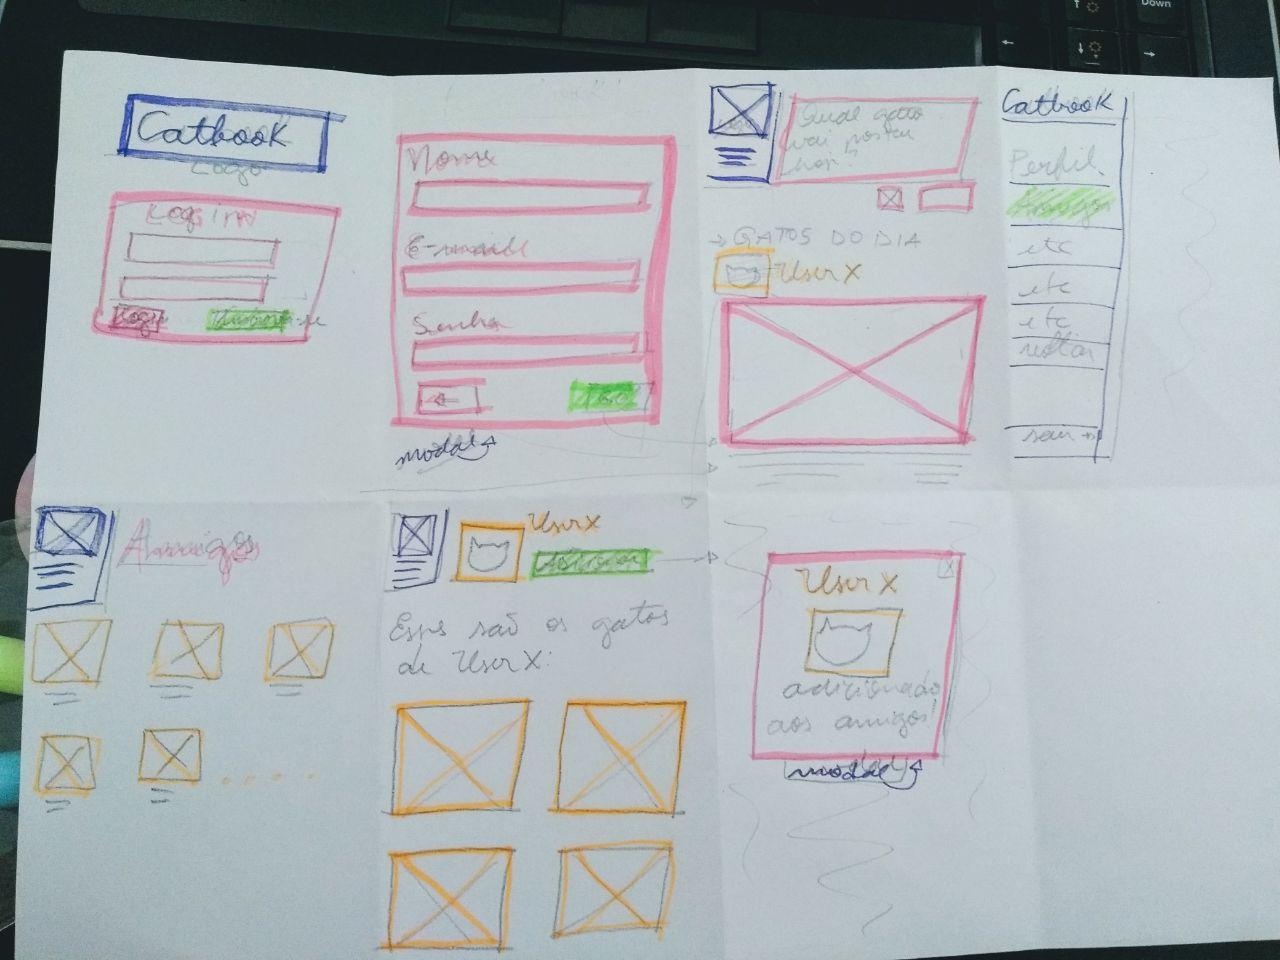 Catbook
Logo
Login
Login
Nome
E-mail
Senha
modal
Qual gato
vai postar
→ GATOS DO DIA
User X
Catbook
Perfil
Amigos
etc
etc
etc
voltar
sair →
Amigos
User X
Adicionar
Esses são os gatos
de User X:
User X
adicionado
aos amigos!
modal
Down